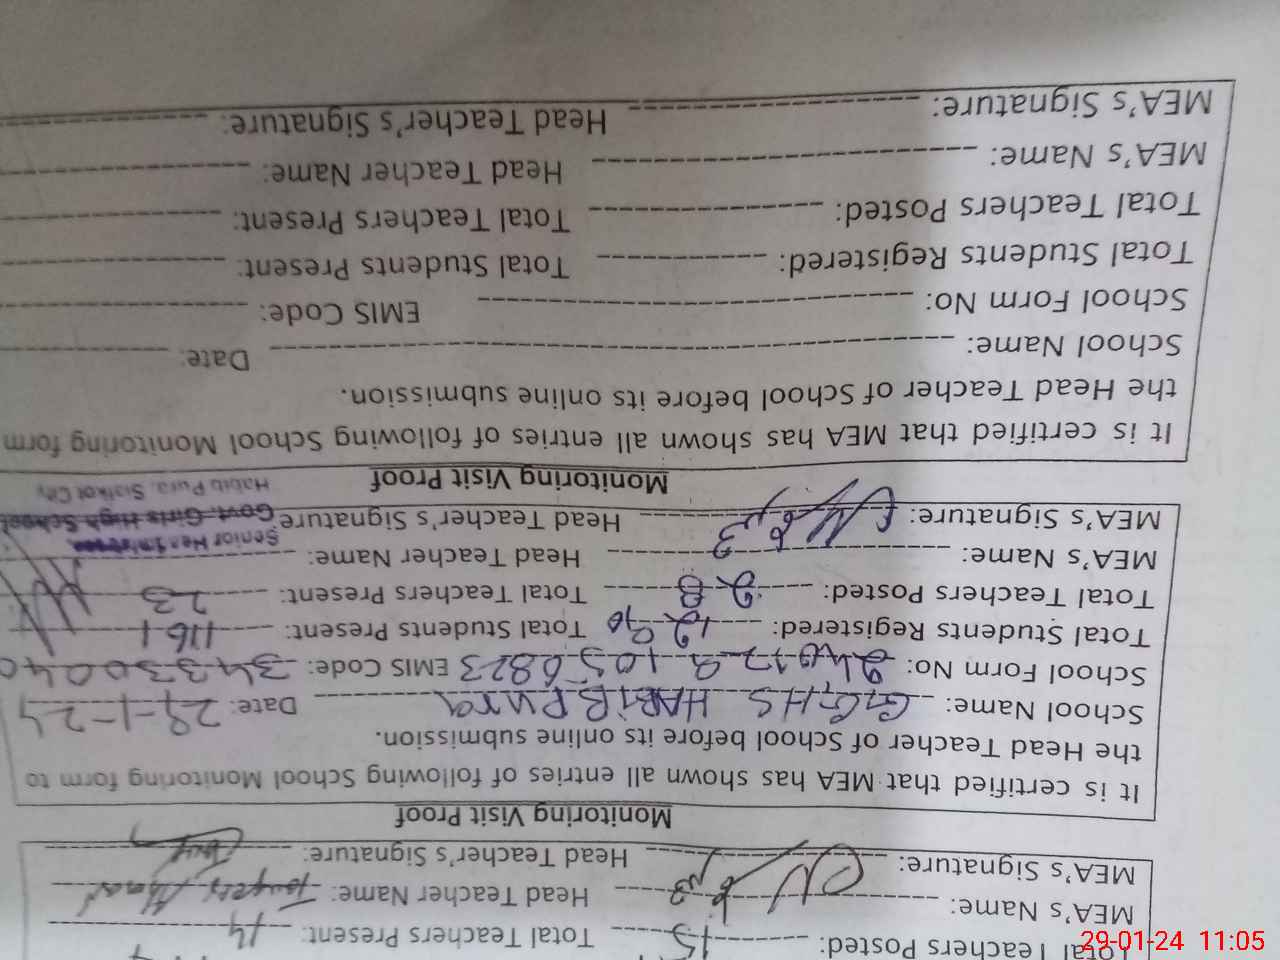 Total Teachers Posted: 15 Total Teachers Present: 14
MEA's Name: Head Teacher Name:
MEA's Signature: Head Teacher's Signature:
Monitoring Visit Proof
It is certified that MEA has shown all entries of following School Monitoring form to
the Head Teacher of School before its online submission.
School Name: GGHS HABIB Pura Date: 29-1-24
School Form No: EMIS Code: 34330040
Total Students Registered: 1290 Total Students Present: 1161
Total Teachers Posted: 28 Total Teachers Present: 23
MEA's Name: Head Teacher Name: Senior
MEA's Signature: Head Teacher's Signature Govt. Girls High School
Habib Pura, Sialkot City
Monitoring Visit Proof
It is certified that MEA has shown all entries of following School Monitoring form
the Head Teacher of School before its online submission.
School Name: Date:
School Form No: EMIS Code:
Total Students Registered: Total Students Present:
Total Teachers Posted: Total Teachers Present:
MEA's Name: Head Teacher Name:
MEA's Signature: Head Teacher's Signature:
29-01-24 11:05